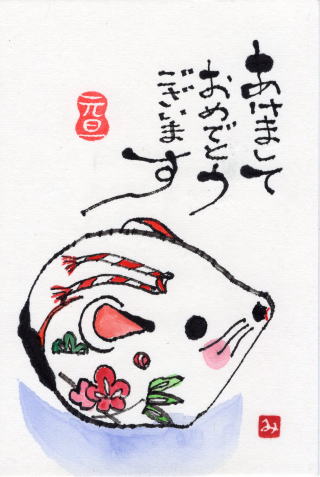 あけまして
おめでとう
ございま
す
元旦
み